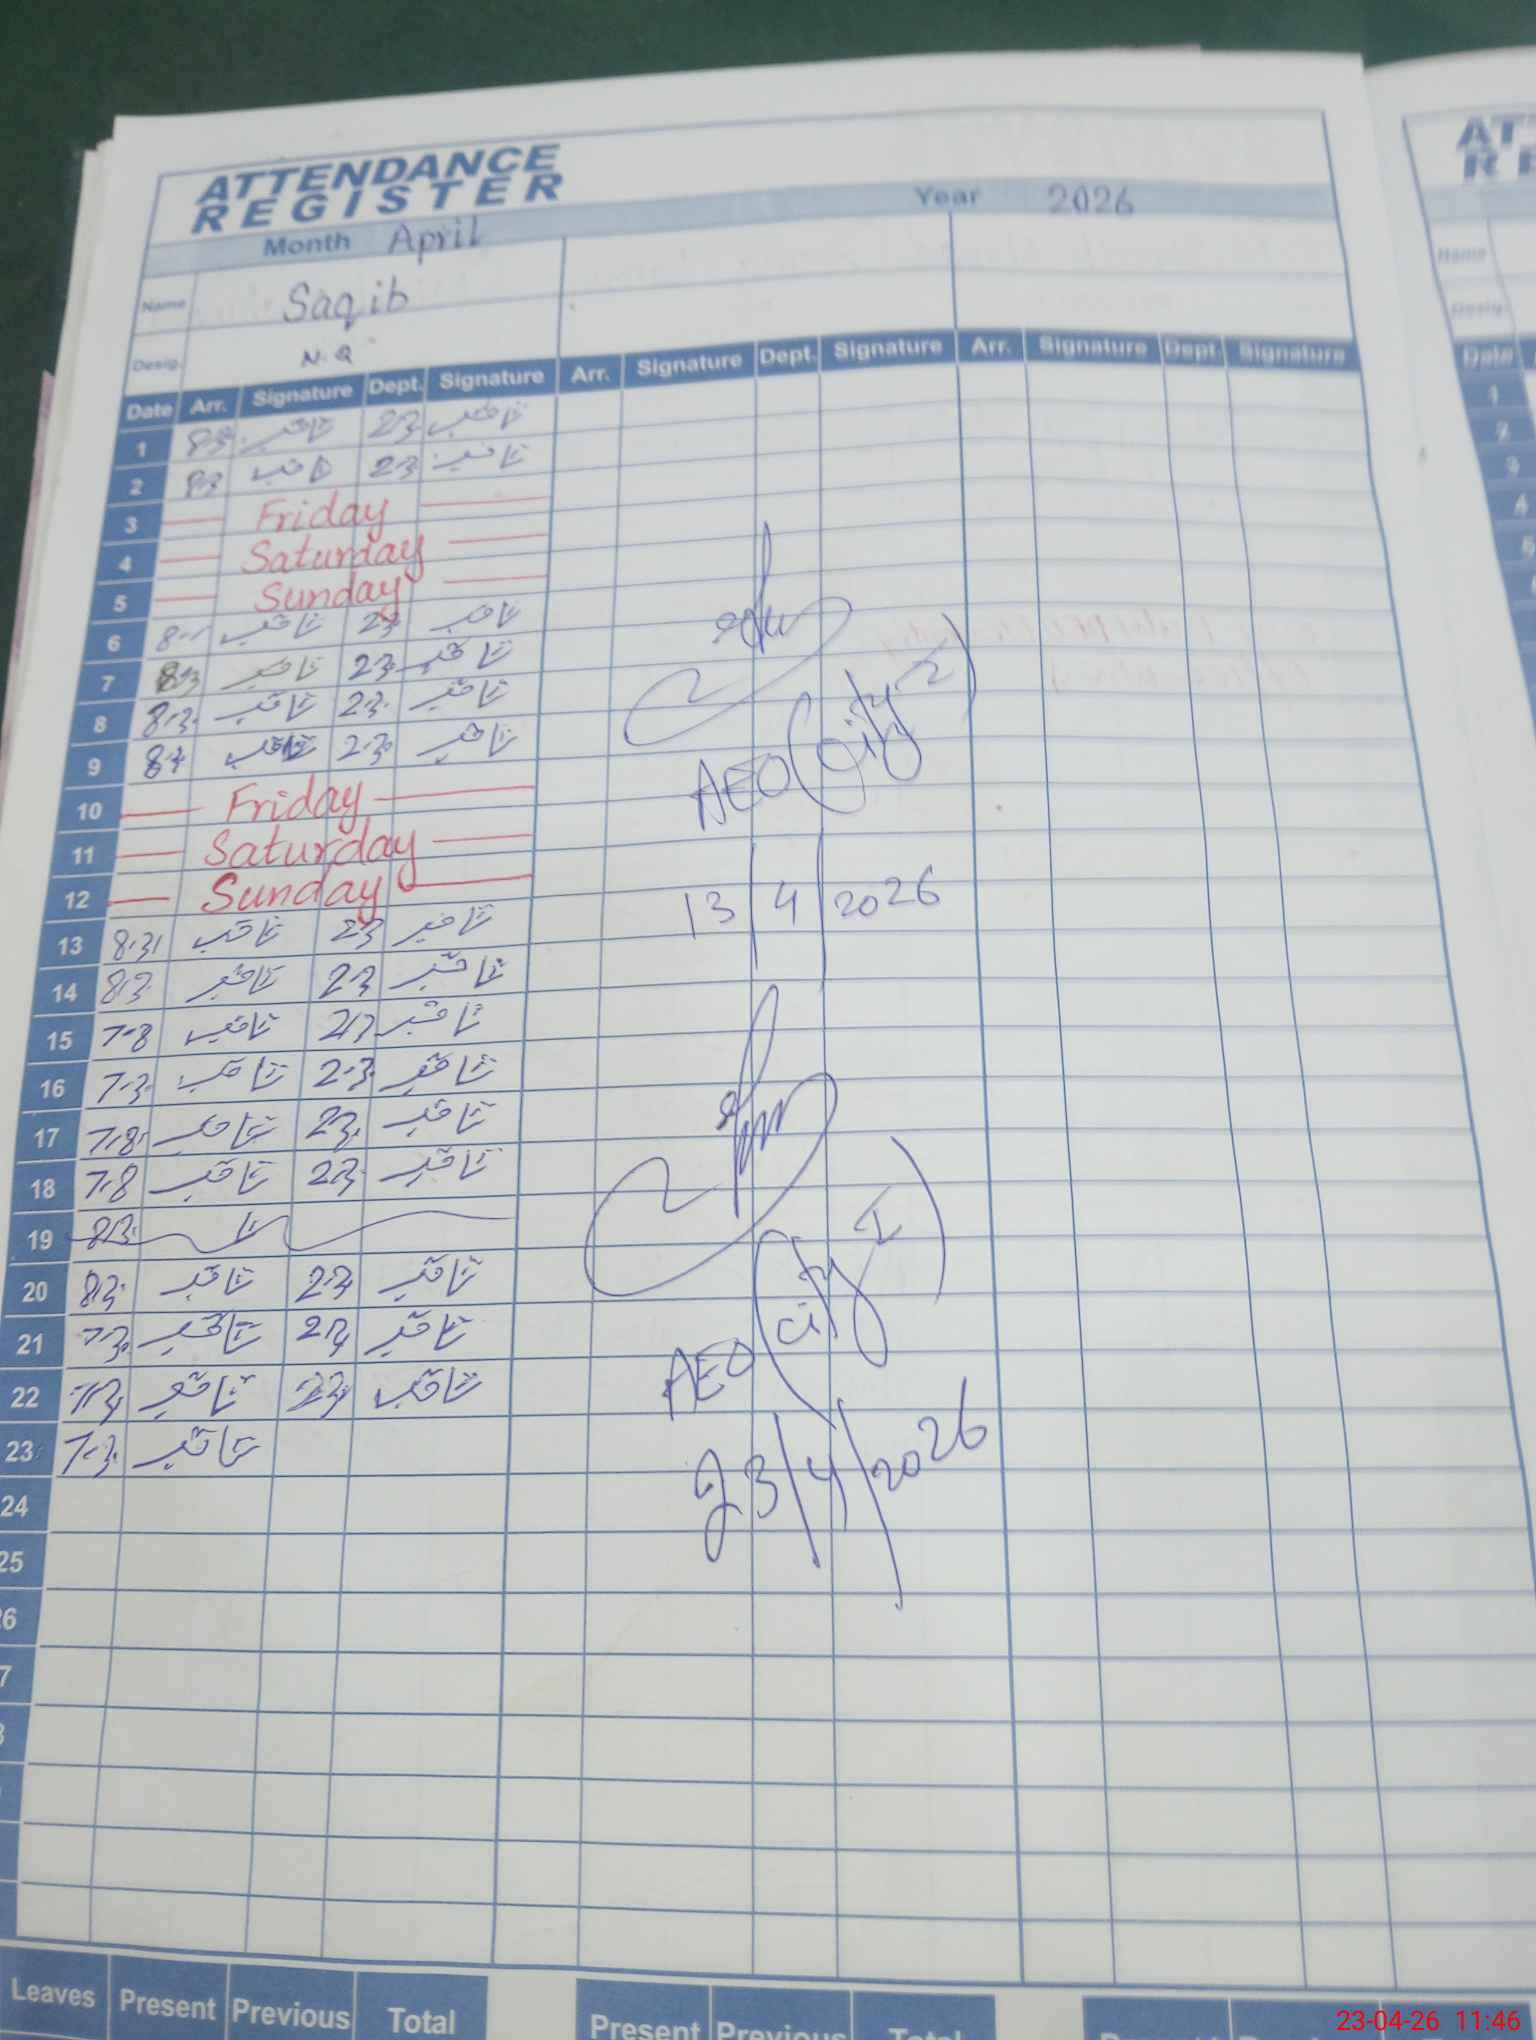 ATTENDANCE
REGISTER
Month April Year 2026
Name Saqib
Desig. N.Q
Date Arr. Signature Dept. Signature Arr. Signature Dept. Signature Arr. Signature Dept. Signature
1 ثاقب 23 ثاقب
2 83 ثاقب 23 ثاقب
3 Friday
4 Saturday
5 Sunday
6 ثاقب 23 ثاقب
7 83 ثاقب 23 ثاقب
8 8.3. ثاقب 23. ثاقب
9 ثاقب 2.3. ثاقب
10 Friday
11 Saturday
12 Sunday
13 ثاقب 23 ثاقب
14 83. ثاقب 23 ثاقب
15 ثاقب ثاقب
16 7.3. ثاقب 2.3. ثاقب
17 ثاقب 23. ثاقب
18 ثاقب 23. ثاقب
19 83.
20 83. ثاقب 2.3 ثاقب
21 ثاقب 23 ثاقب
22 ثاقب 23 ثاقب
23 7.3. ثاقب
24
25
AEO (City I)
13/4/2026
AEO (City I)
23/4/2026
Leaves Present Previous Total Present Previous Total
23-04-26 11:46